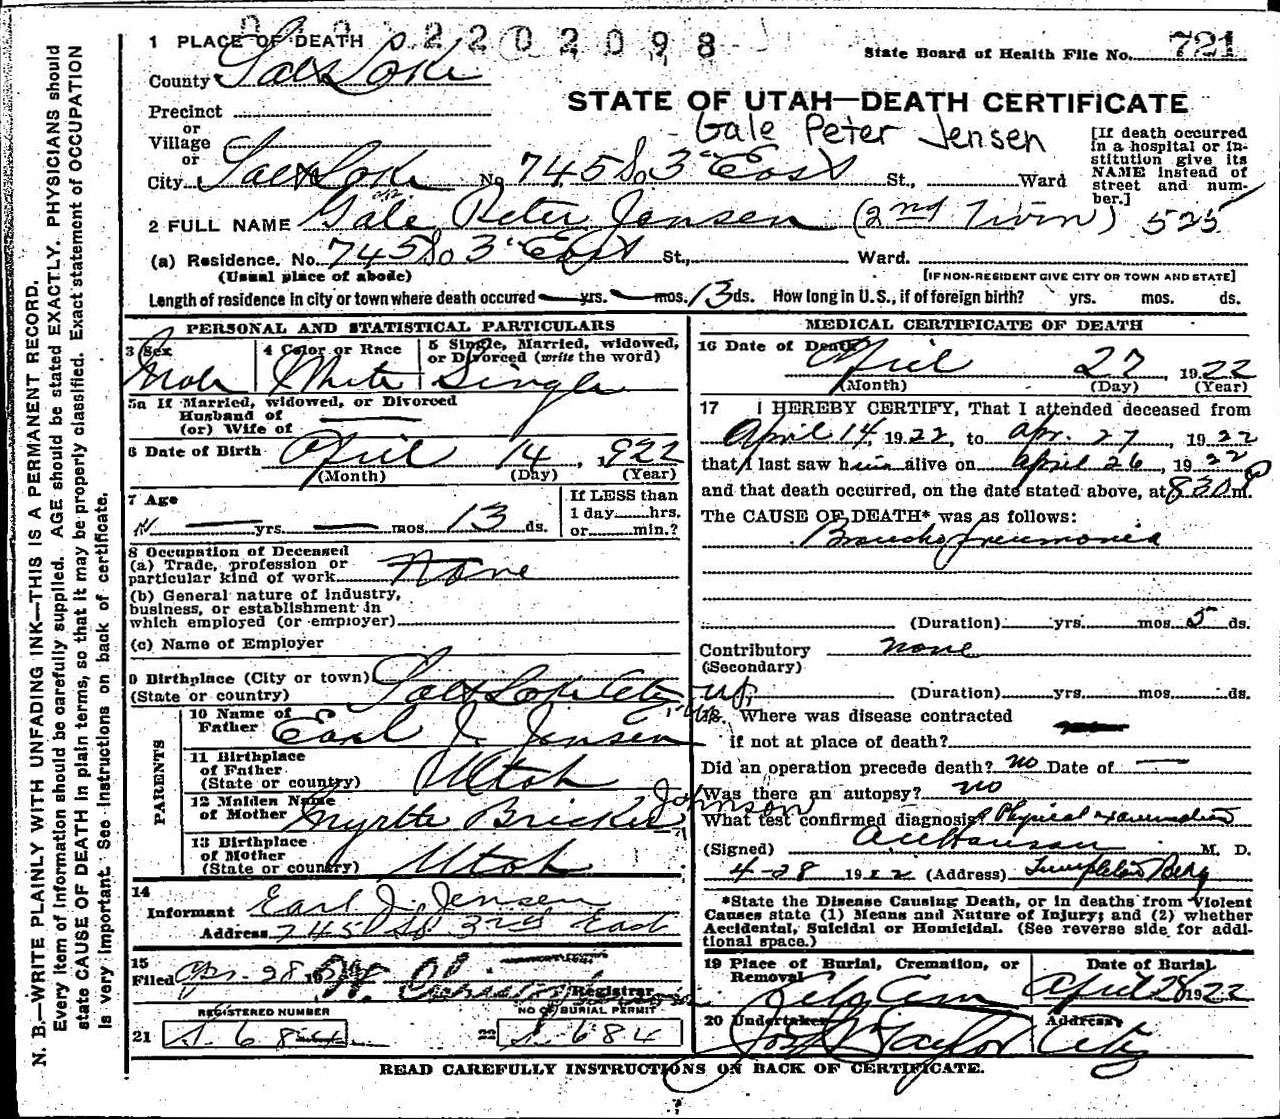 2202098
1 PLACE OF DEATH
State Board of Health File No. 721
County Salt Lake
STATE OF UTAH—DEATH CERTIFICATE
Precinct
or
Village
or
Gale Peter Jensen
[If death occurred
in a hospital or in-
stitution give its
NAME instead of
street and num-
ber.]
City Salt Lake No. 745 So 3" East St., Ward
2 FULL NAME Gale Peter Jensen (2nd Twin) 525
(a) Residence. No. 745 So 3" East St., Ward.
(Usual place of abode) [IF NON-RESIDENT GIVE CITY OR TOWN AND STATE]
Length of residence in city or town where death occured — yrs. — mos. 13 ds. How long in U.S., if of foreign birth? yrs. mos. ds.
PERSONAL AND STATISTICAL PARTICULARS
3 Sex Male
4 Color or Race White
5 Single, Married, widowed,
or Divorced (write the word)
Single
5a If Married, widowed, or Divorced
Husband of
(or) Wife of —
6 Date of Birth April 14, 1922
(Month) (Day) (Year)
7 Age
— yrs. — mos. 13 ds.
If LESS than
1 day......hrs.
or......min.?
8 Occupation of Deceased
(a) Trade, profession or
particular kind of work None
(b) General nature of industry,
business, or establishment in
which employed (or employer)
(c) Name of Employer
9 Birthplace (City or town)
(State or country) Salt Lake City
PARENTS
10 Name of
Father Earl J. Jensen
11 Birthplace
of Father
(State or country) Utah
12 Maiden Name
of Mother Myrtle Bricker Johnson
13 Birthplace
of Mother
(State or country) Utah
14
Informant Earl J. Jensen
Address 745 So 3rd East
15
Filed Apr. 28 19
Registrar
REGISTERED NUMBER
21 S. 684
NO OF BURIAL PERMIT
22 S. 684
MEDICAL CERTIFICATE OF DEATH
16 Date of Death April 27, 1922
(Month) (Day) (Year)
17 I HEREBY CERTIFY, That I attended deceased from
April 14, 1922, to Apr. 27, 1922
that I last saw him alive on April 26, 1922
and that death occurred, on the date stated above, at 830 P m.
The CAUSE OF DEATH* was as follows:
Broncho pneumonia
(Duration) yrs. mos. 5 ds.
Contributory none
(Secondary)
(Duration) yrs. mos. ds.
18. Where was disease contracted
if not at place of death?
Did an operation precede death? no Date of —
Was there an autopsy? no
What test confirmed diagnosis? Physical examination
(Signed) M. D.
4-28 1922 (Address) Templeton Bldg
*State the Disease Causing Death, or in deaths from Violent
Causes state (1) Means and Nature of Injury; and (2) whether
Accidental, Suicidal or Homicidal. (See reverse side for addi-
tional space.)
19 Place of Burial, Cremation, or
Removal
Date of Burial
April 28 1922
20 Undertaker Jos Wm Taylor
Address City
READ CAREFULLY INSTRUCTIONS ON BACK OF CERTIFICATE.
N. B.—WRITE PLAINLY WITH UNFADING INK—THIS IS A PERMANENT RECORD.
Every item of information should be carefully supplied. AGE should be stated EXACTLY. PHYSICIANS should
state CAUSE OF DEATH in plain terms, so that it may be properly classified. Exact statement of OCCUPATION
is very important. See instructions on back of certificate.